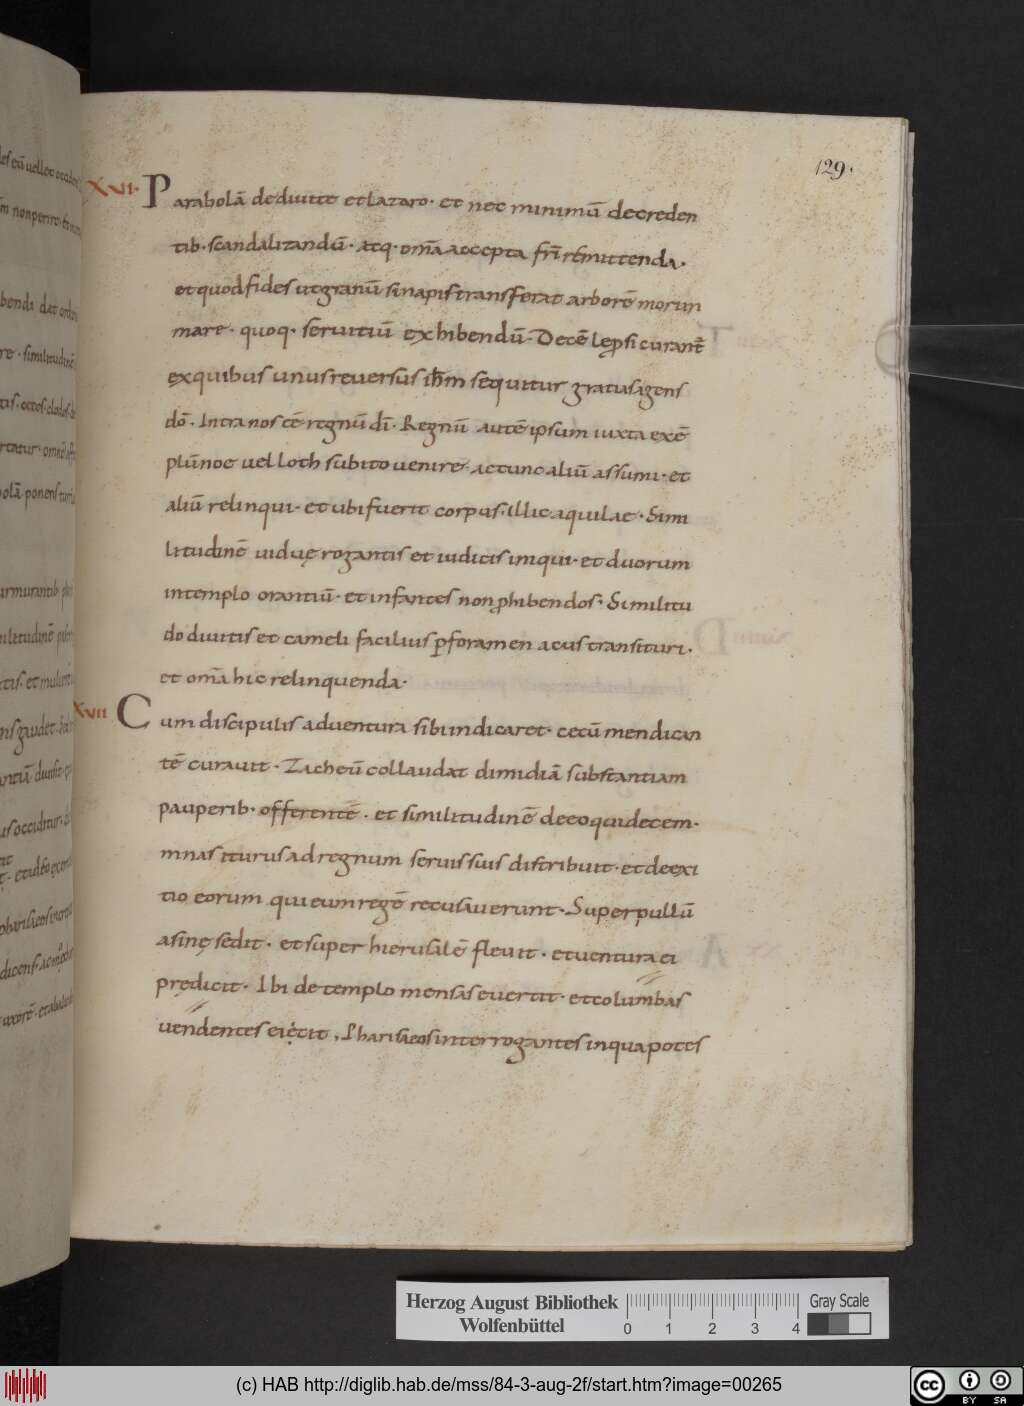 129.
XVI. Parabolā dediuite etlazaro. et nec minimū decreden
tib. scandalizandū. atq. om̄a accepta fr̄i remittenda.
etquodfides utgranū sinapistransferat arborē morum
mare. quoq. seruitiū exhibendū. Decē lep̄si curant̄
exquibus unusreuersus ih̄m sequitur gratiasagens
dō. Intra nos eē regnū dī. Regnū autē ipsum iuxta exē
plū noe uel loth subito uenire. actunc aliū assumi. et
aliū relinqui. et ubifuerit corpus. Illic aquilae. Simi
litudinē uiduę rogantis et iudicis iniqui. et duorum
intemplo orantiū. et infantes non ꝓhibendos. Similitu
do diuitis et cameli facilius ꝑforamen acus transituri.
et om̄a hic relinquenda.
XVII Cum discipulis aduentura sibi indicaret. cecū mendican
tē curauit. Zacheū collaudat dimidiā substantiam
pauperib. offerentē. et similitudinē deeoquidecem.
mnas iturus ad regnum seruis suis distribuit. et deexi
tio eorum qui eum regē recusauerunt. Superpullū
asinę sedit. et super hierusalē fleuit. etuentura ei
prędicit. Ibi de templo mensas euertit. et columbas
uendentes eiecit, Pharisaeos interrogantes inquapotes
Herzog August Bibliothek
Wolfenbüttel
0 1 2 3 4
Gray Scale
(c) HAB http://diglib.hab.de/mss/84-3-aug-2f/start.htm?image=00265
cc BY SA